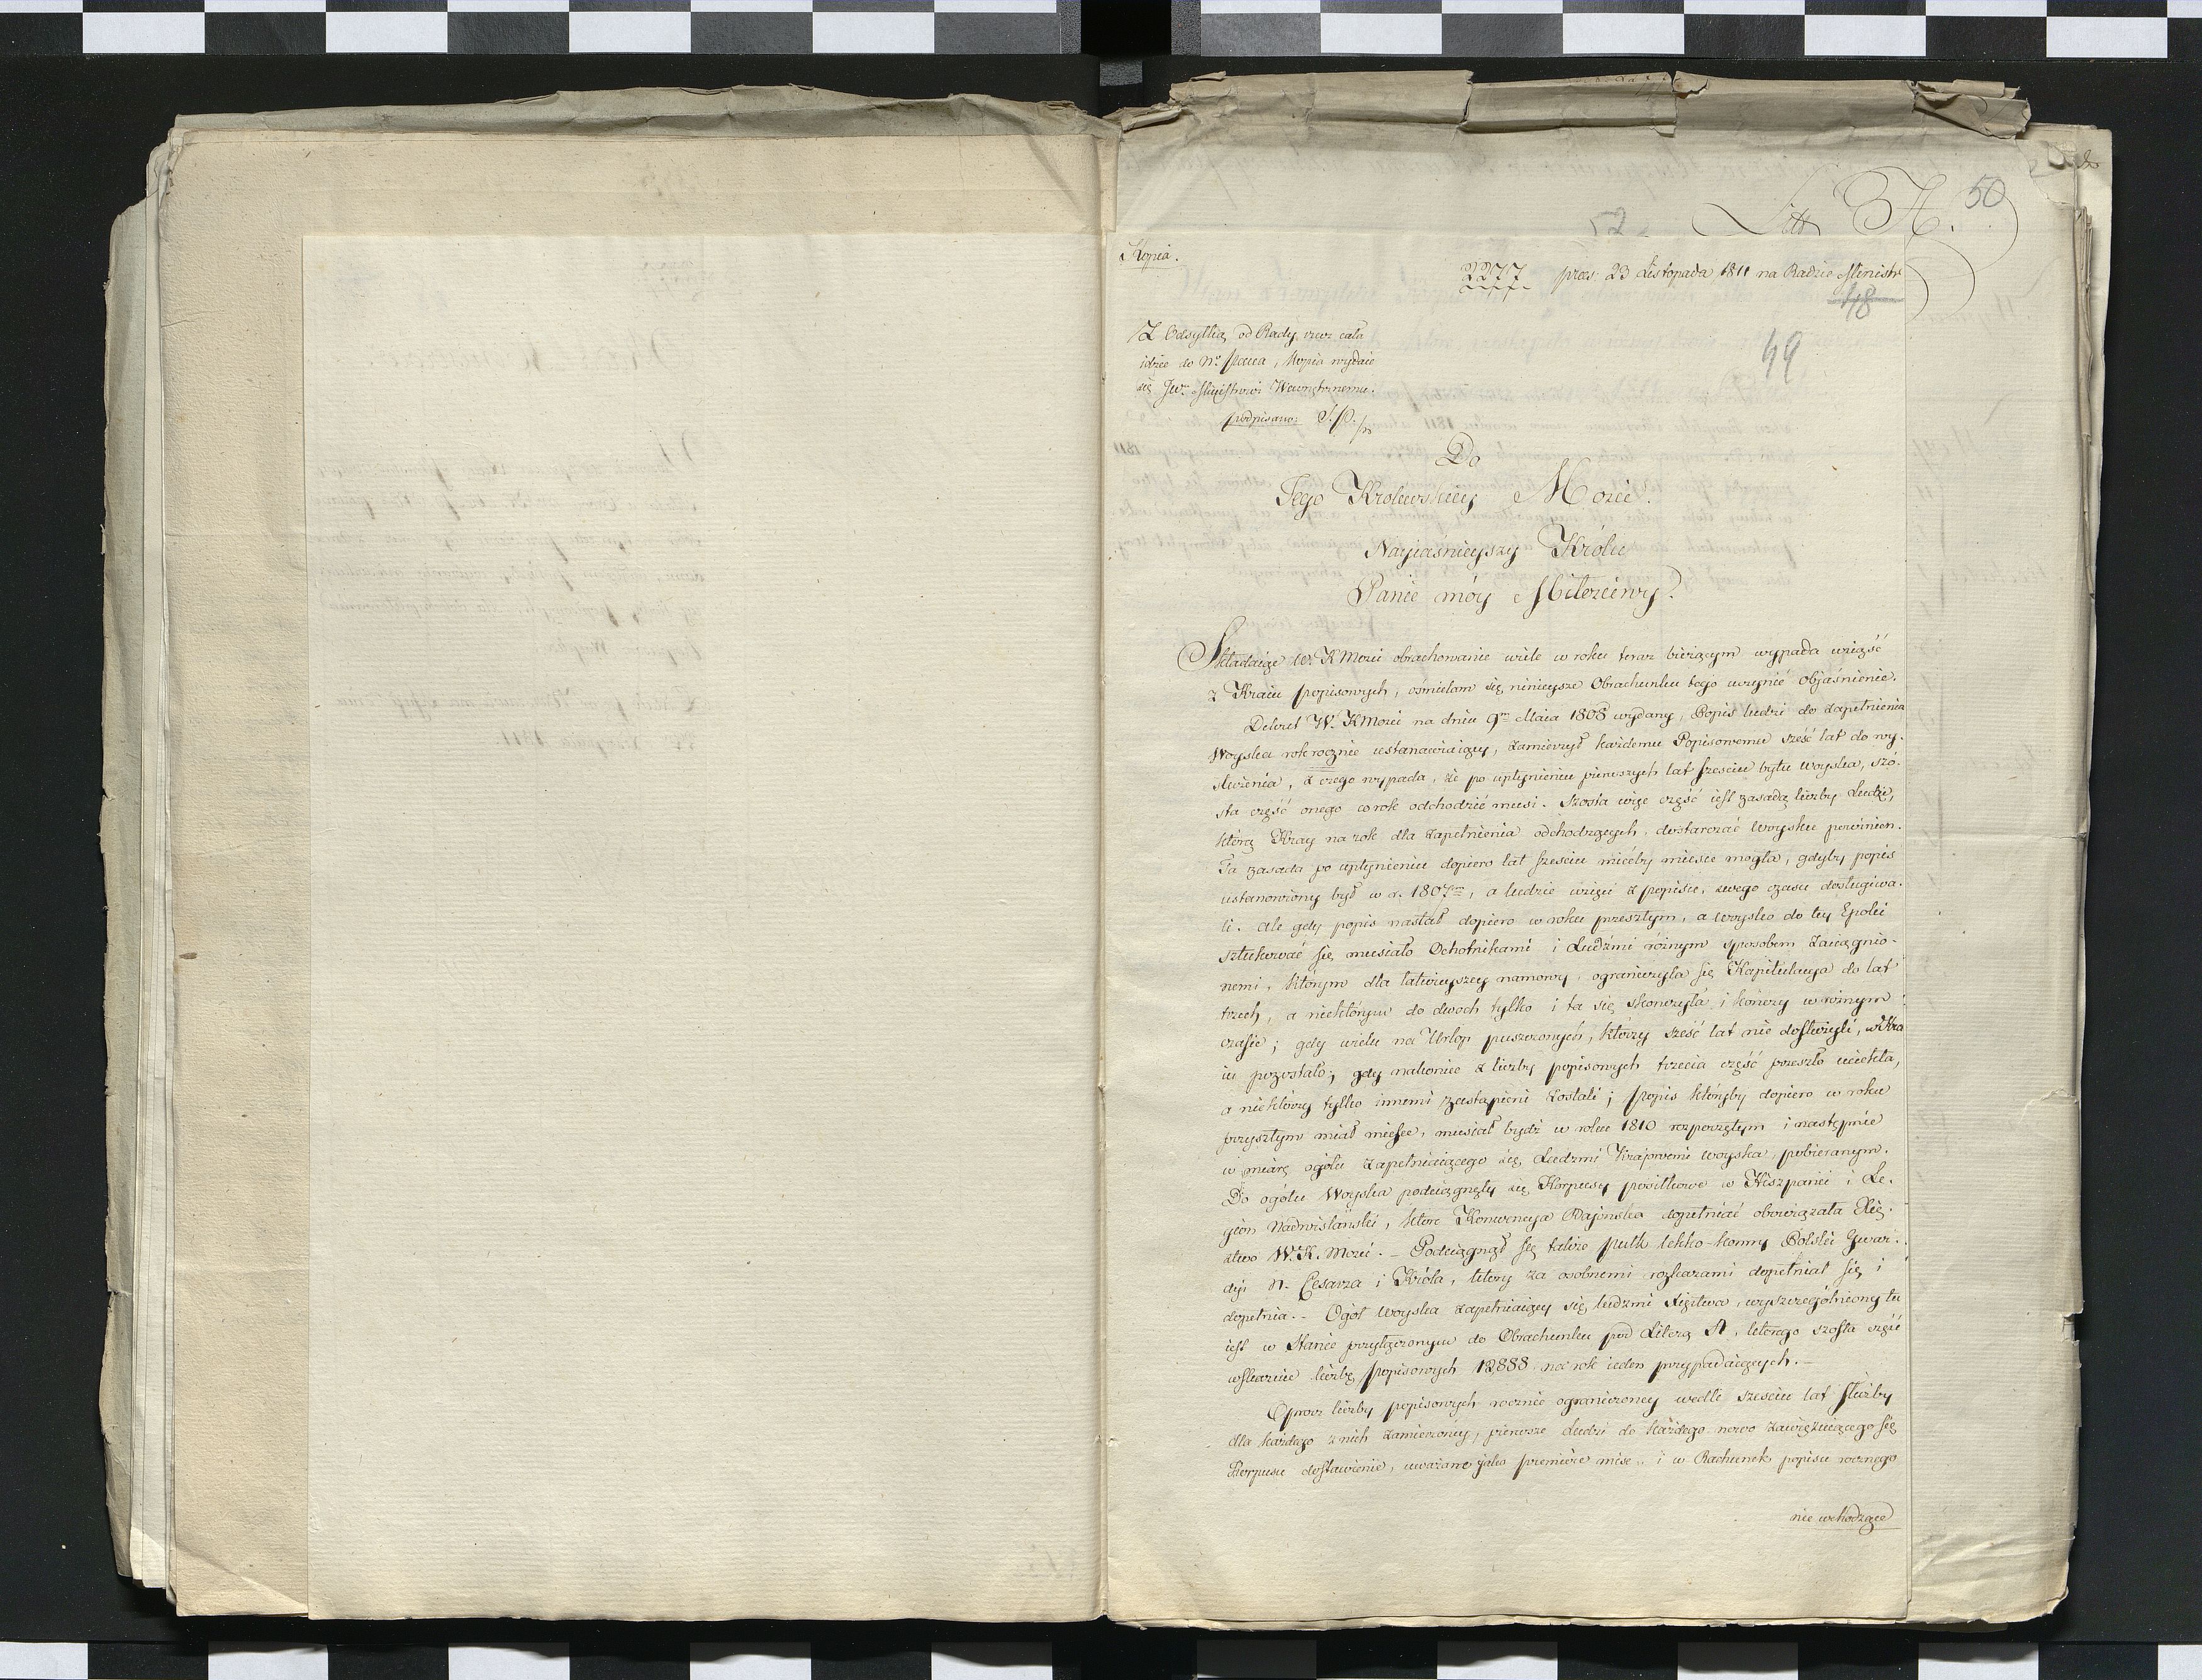 50
Litt A.
52
Kopia.
2277 prez: 23 Listopada 1811 na Radzie Ministr
48
49
Z Odsyłką od Rady, rzecz cała
idzie do Nº. Kopia wydaie
się Jw. Ministrowi Wewnętrznemu.
podpisano:
Do
Jego Krolewskiey Mości.
Nayiaśnieyszy Królu
Panie móy Miłościwy!
Składaiąc W. K Mości obrachowanie wiele w roku teraz bieżącym wypada wziąść
z Kraiu popisowych, ośmielam się ninieysze Obrachunku tego uczynić objaśnienie.
Dekret W. K Mości na dniu 9m Maia 1808 wydany, Popis ludzi do zapełnienia
Woyska rok rocznie ustanawiaiący, zamierzył każdemu Popisowemu sześć lat do wy-
służenia, z czego wypada, że po upłynieniu pierwszych lat sześciu bytu woyska, szó-
sta część onego co rok odchodzić musi. Szósta więc część iest zasadą liczby Ludzi,
którą Kray na rok dla zapełnienia odchodzących, dostarczać woysku powinien.
Ta zasada po upłynieniu dopiero lat sześciu miećby mieysce mogła, gdyby popis
ustanowiony był w r. 1807m, a ludzie wzięci z popisu, swego czasu dosługiwa-
li. Ale gdy popis nastał dopiero w roku przeszłym, a woysko do tey Epoki
sztukować się musiało Ochotnikami i Ludźmi różnym sposobem zaciągnio-
nemi, którym dla łatwieyszey namowy ograniczyła się Kapitulacya do lat
trzech, a niektórym do dwoch tylko i ta się skonczyła i kończy w różnym
czasie; gdy wielu na Urlop puszczonych, którzy sześć lat nie dosłużyli, w Kra
iu pozostało; gdy nakoniec z liczby popisowych trzecia część przeszło uciekła,
a niektórzy tylko innemi zastąpieni zostali; popis któryby dopiero w roku
przyszłym miał mieysce, musiał bydź w roku 1810 rozpoczętym i następnie
w miarę ogółu zapełniaiącego się Ludzmi Kraiowemi woyska, pobieranym.
Do ogółu Woyska podciągnęły się Korpusy posiłkowe w Hiszpanii i Le-
gion Nadwislański, które Konwencya Bajońska dopełniać obowiązała Xię-
stwo W. K. Mości. – Podciągnął się także pułk lekko-konny Polski Gwar-
dyi N. Cesarza i Króla, ktory za osobnemi rozkazami dopełniał się i
dopełnia. - Ogół woyska zapełniaiący się ludzmi Xięstwa, wyszczególniony tu
iest w Stanie przyłączonym do Obrachunku pod Literą A, ktorego szosta część
wskazuie liczbę popisowych 12888 na rok ieden przypadaiących. –
Oprocz liczby popisowych rocznie ograniczoney wedle sześciu lat służby
dla każdego z nich zamierzoney, pierwsze Ludzi do każdego nowo zawięzuiącego się
Korpusu dostawienie, uważane jako première mise .. i w Rachunek popisu rocznego
nie wchodzące